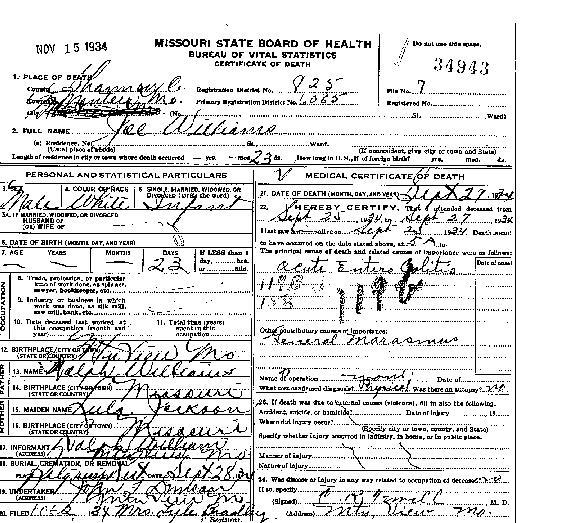 NOV 15 1934
MISSOURI STATE BOARD OF HEALTH
BUREAU OF VITAL STATISTICS
CERTIFICATE OF DEATH
Do not use this space.
34943
1. PLACE OF DEATH
County Shannon Co. Registration District No. 925 File No. 7
Primary Registration District No. 6065 Registered No.
City (No. St. Ward)
2. FULL NAME Joe Williams
(a) Residence, No. St. Ward.
(Usual place of abode) (If nonresident, give city or town and State)
Length of residence in city or town where death occurred yrs. mos. 23 ds. How long in U. S., if of foreign birth? yrs. mos. ds.
PERSONAL AND STATISTICAL PARTICULARS
3. SEX 4. COLOR OR RACE 5. SINGLE, MARRIED, WIDOWED, OR DIVORCED (write the word)
Male White Infant
5A. IF MARRIED, WIDOWED, OR DIVORCED
HUSBAND OF
(OR) WIFE OF
6. DATE OF BIRTH (MONTH, DAY, AND YEAR)
7. AGE YEARS MONTHS DAYS If LESS than 1 day, hrs. or min.
23
OCCUPATION
8. Trade, profession, or particular kind of work done, as spinner, sawyer, bookkeeper, etc.
9. Industry or business in which work was done, as silk mill, saw mill, bank, etc.
10. Date deceased last worked at this occupation (month and year)
11. Total time (years) spent in this occupation
12. BIRTHPLACE (CITY OR TOWN) Mtn View Mo
(STATE OR COUNTRY)
FATHER
13. NAME Ralph Williams
14. BIRTHPLACE (CITY OR TOWN) Missouri
(STATE OR COUNTRY)
MOTHER
15. MAIDEN NAME Lula Jackson
16. BIRTHPLACE (CITY OR TOWN) Missouri
(STATE OR COUNTRY)
17. INFORMANT Ralph William
(ADDRESS)
18. BURIAL, CREMATION, OR REMOVAL
Sept 28 34
19. UNDERTAKER
(ADDRESS) View Mo
20. FILED 34 Mrs.
MEDICAL CERTIFICATE OF DEATH
21. DATE OF DEATH (MONTH, DAY, AND YEAR) Sept 27 1934
22. I HEREBY CERTIFY, That I attended deceased from
Sept 25 1934, Sept 27 1934
I last saw alive on Sept 25 1934 Death is said
to have occurred on the date stated above, at 5 A m.
The principal cause of death and related causes of importance were as follows:
Date of onset
Acute Entero Colitis
119B
119B
Other contributory causes of importance:
General Marasmus
Name of operation Date of
What test confirmed diagnosis? Physical Was there an autopsy? no
23. If death was due to external causes (violence), fill in also the following:
Accident, suicide, or homicide? Date of injury 19
Where did injury occur?
(Specify city or town, county, and State)
Specify whether injury occurred in industry, in home, or in public place.
Manner of injury
Nature of injury
24. Was disease or injury in any way related to occupation of deceased? no
If so, specify
(Signed) M. D.
(Address) Mtn View Mo.